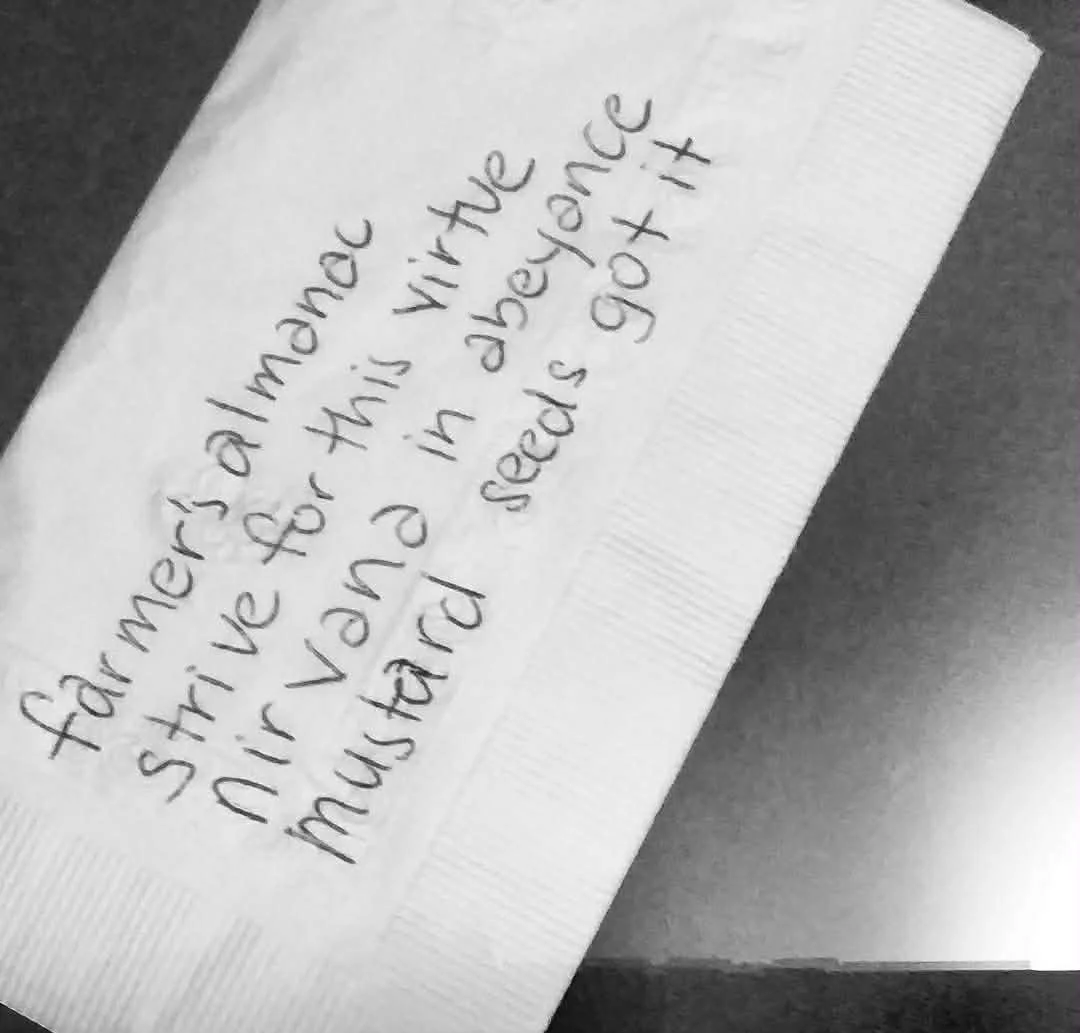 farmer's almanac
strive for this virtue
nirvana in abeyonce
mustard seeds got it